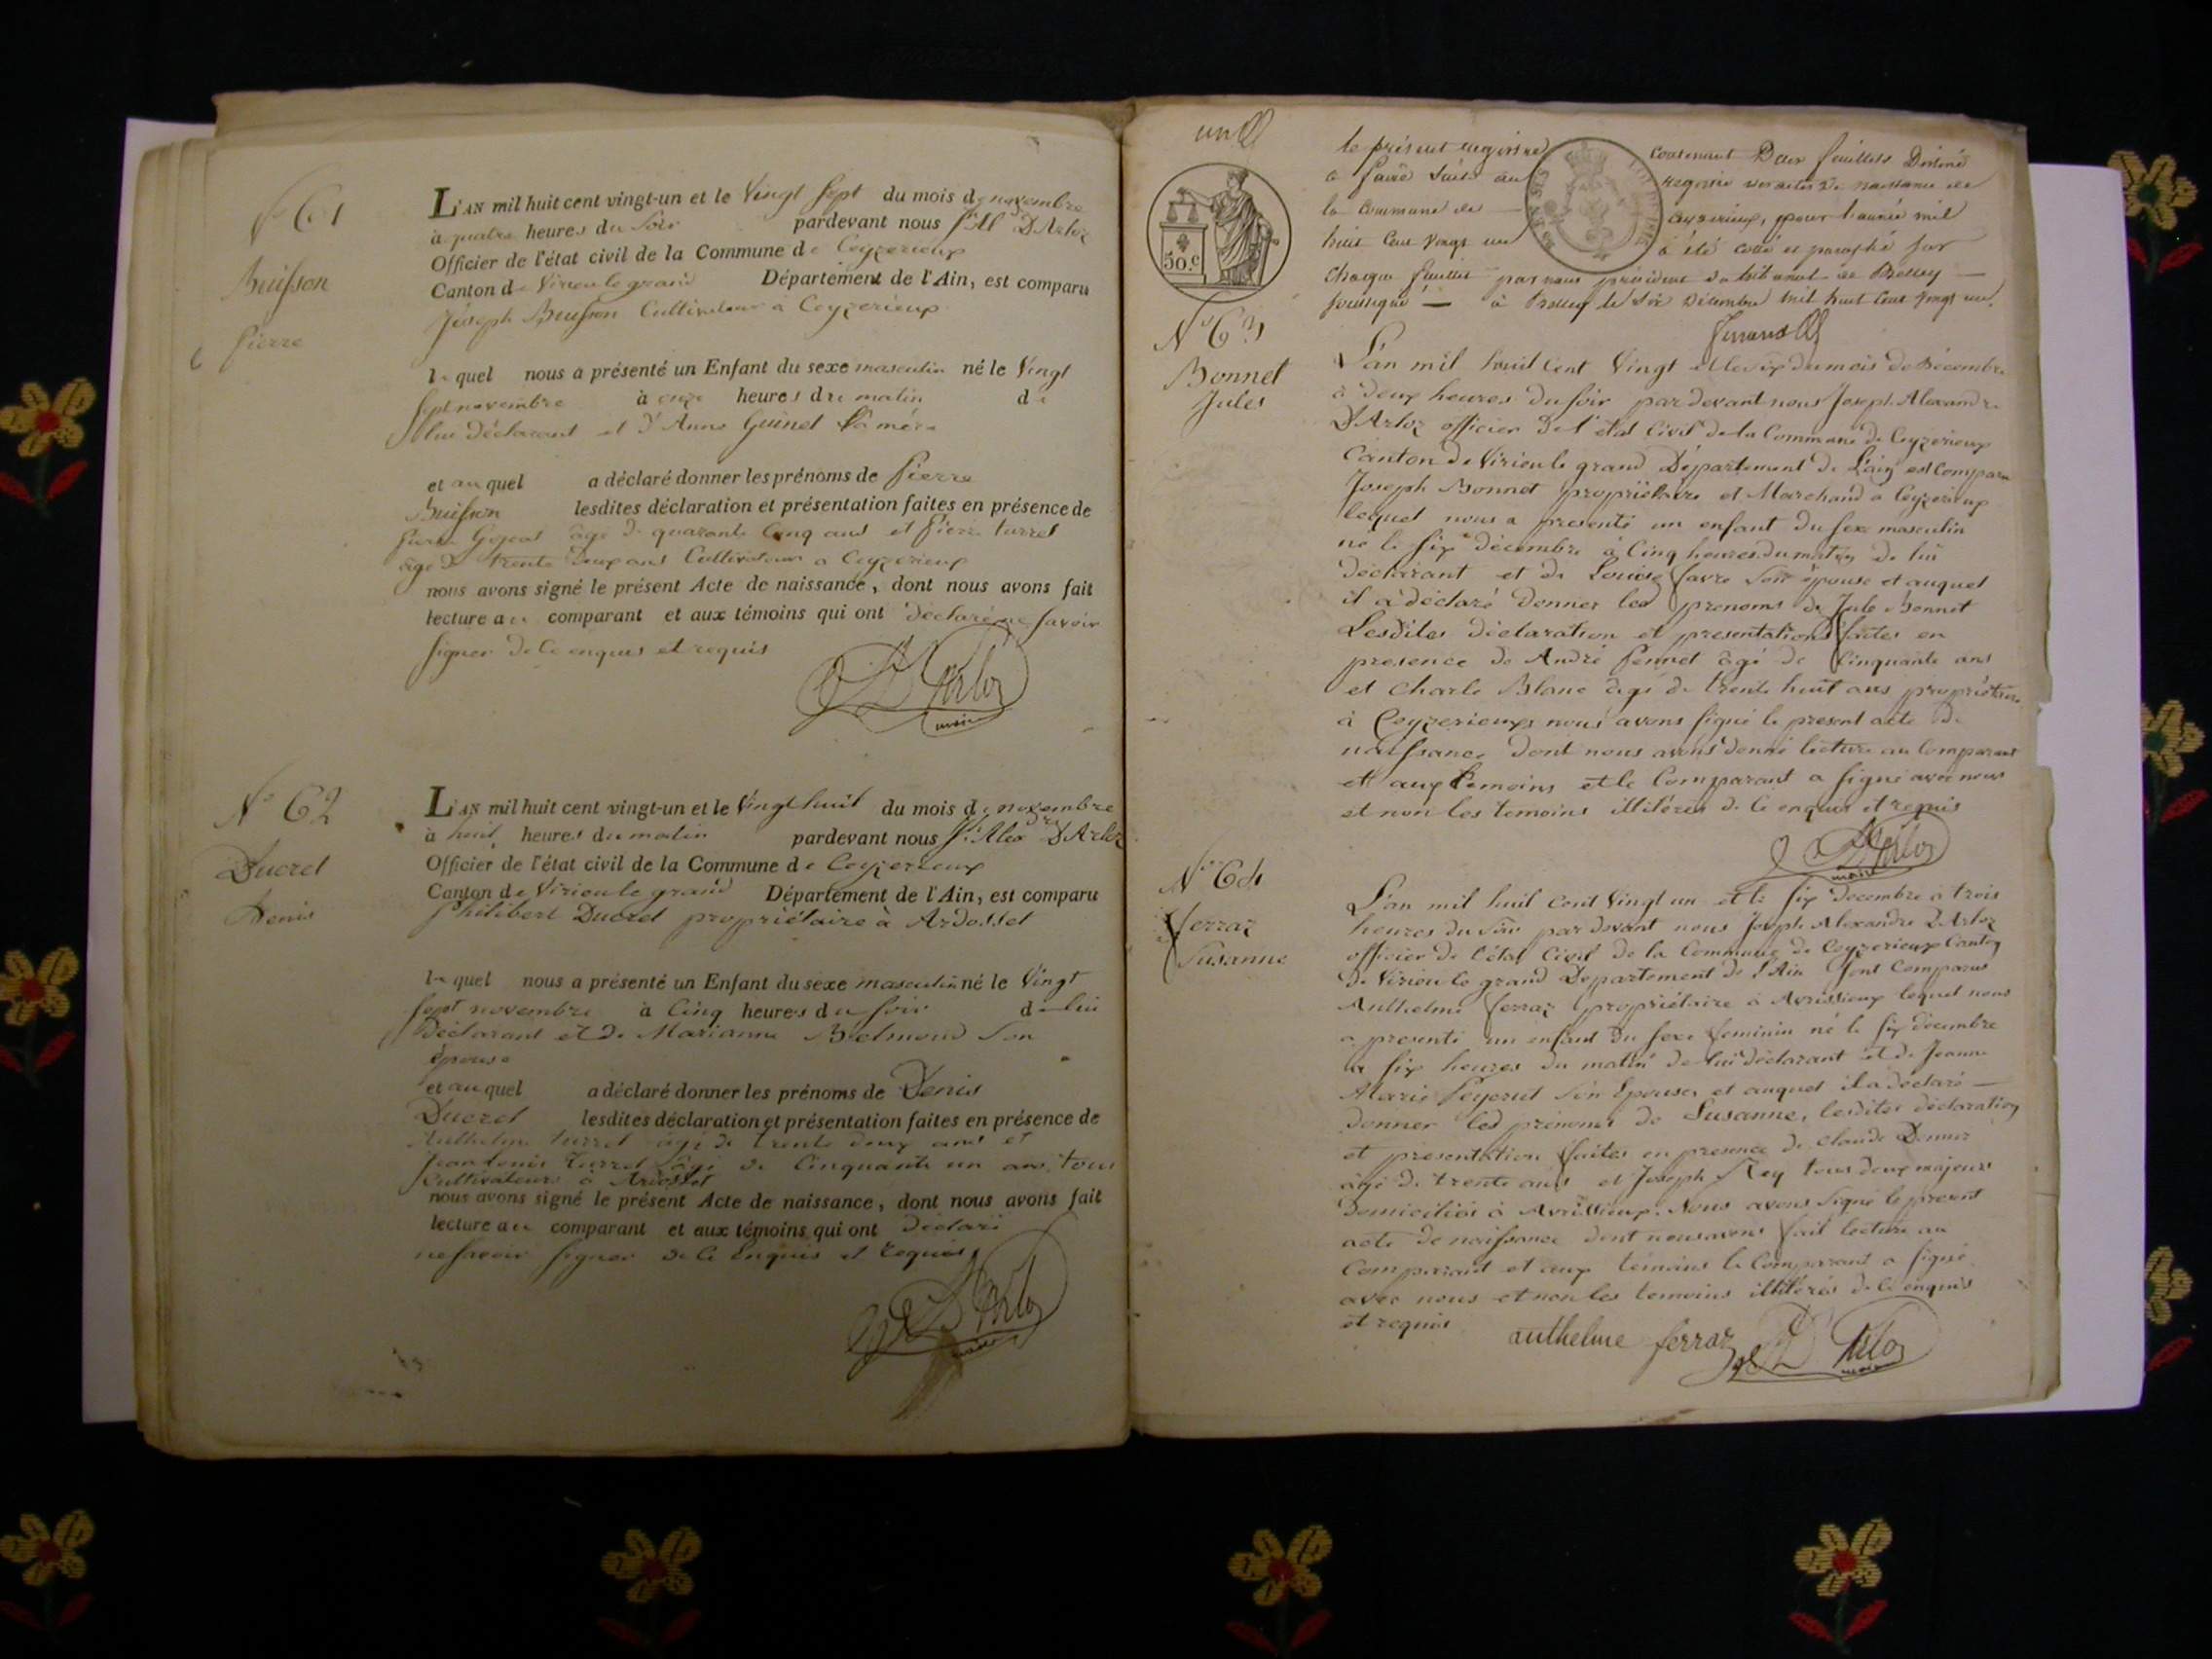 N° 61
Buisson
Pierre
L'AN mil huit cent vingt-un et le Vingt sept du mois de novembre
à quatre heures du Soir pardevant nous Jh Al D'Arloz
Officier de l'état civil de la Commune de Ceyzerieux
Canton de Virieu le grand Département de l'Ain, est comparu
Joseph Buisson Cultivateur à Ceyzerieux
lequel nous a présenté un Enfant du sexe masculin né le Vingt
sept novembre à onze heures du matin de
lui déclarant et d'Anne Guinet sa mère
et auquel a déclaré donner les prénoms de Pierre
Buisson lesdites déclaration et présentation faites en présence de
âgé de quarante Cinq ans et Pierre turrel
âgé de trente deux ans Cultivateurs a Ceyzerieux
nous avons signé le présent Acte de naissance, dont nous avons fait
lecture au comparant et aux témoins qui ont déclaré ne savoir
signer de ce enquis et requis
D'Arloz
maire
N° 62
Ducret
Denis
L'AN mil huit cent vingt-un et le Vingt huit du mois de novembre
à huit heures du matin pardevant nous Jh Alex dre D'Arloz
Officier de l'état civil de la Commune de Ceyzerieux
Canton de Virieu le grand Département de l'Ain, est comparu
Philibert Ducret propriétaire à Ardosset
lequel nous a présenté un Enfant du sexe masculin né le Vingt
sept novembre à Cinq heures du soir de lui
déclarant et de Marianne son
épouse
et auquel a déclaré donner les prénoms de Denis
Ducret lesdites déclaration et présentation faites en présence de
Anthelme turrel âgé de trente deux ans et
Jean Louis turrel âgé de Cinquante un ans tous
Cultivateurs à Ardosset
nous avons signé le présent Acte de naissance, dont nous avons fait
lecture au comparant et aux témoins qui ont déclaré
ne savoir signer de ce Enquis et requis
D'Arloz
maire
un
50.c
le présent registre contenant Deux feuillets Destiné
a faire suite au registre des actes de naissance de
la commune de Ceyzerieux, pour l'année mil
huit Cent vingt un a été cotté et paraphé sur
chaque feuillet par nous président du tribunal de Belley
soussigné à Belley le six Décembre mil huit Cent vingt un.
N° 63
Bonnet
Jules
L'an mil huit cent Vingt et le six du mois de Décembre
à deux heures du soir pardevant nous Joseph Alexandre
D'Arloz officier de l'état Civil de la Commune de Ceyzerieux
Canton de Virieu le grand Département de L'ain est Comparu
Joseph Bonnet propriétaire et Marchand a Ceyzerieux
lequel nous a presenté un enfant du sexe masculin
né le six décembre à Cinq heures du matin de lui
déclarant et de Louise favre son épouse et auquel
il a déclaré donner les prenoms de Jule Bonnet
Lesdites déclaration et presentations faites en
presence de André Pennet âgé de Cinquante ans
et Charle Blanc âgé de trente huit ans propriétaires
à Ceyzerieux nous avons signé le present acte de
naissance dont nous avons donné lecture au Comparant
et aux temoins et le Comparant a signé avec nous
et non les temoins illitérés de ce enquis et requis
D'Arloz
maire
N° 64
ferraz
Susanne
L'an mil huit cent Vingt un et le six decembre à trois
heures du soir pardevant nous Joseph Alexandre D'Arloz
officier de l'état Civil de la Commune de Ceyzerieux Canton
de Virieu le grand Departement de l'Ain sont Comparus
Anthelme ferraz propriétaire à Avrissieux lequel nous
a presenté un enfant du sexe feminin né le six décembre
à six heures du matin de lui déclarant et de Jeanne
Marie son Epouse, et auquel il a déclaré
donner les prenoms de Susanne, lesdites déclaration
et presentation faites en presence de claude
âgé de trente ans et Joseph Rey tous deux majeurs
Domiciliés à Avrissieux. Nous avons signé le present
acte de naissance dont nous avons fait lecture au
Comparant et aux témoins le Comparant a signé
avec nous et non les temoins illitérés de ce enquis
et requis
anthelme ferraz D'Arloz
maire